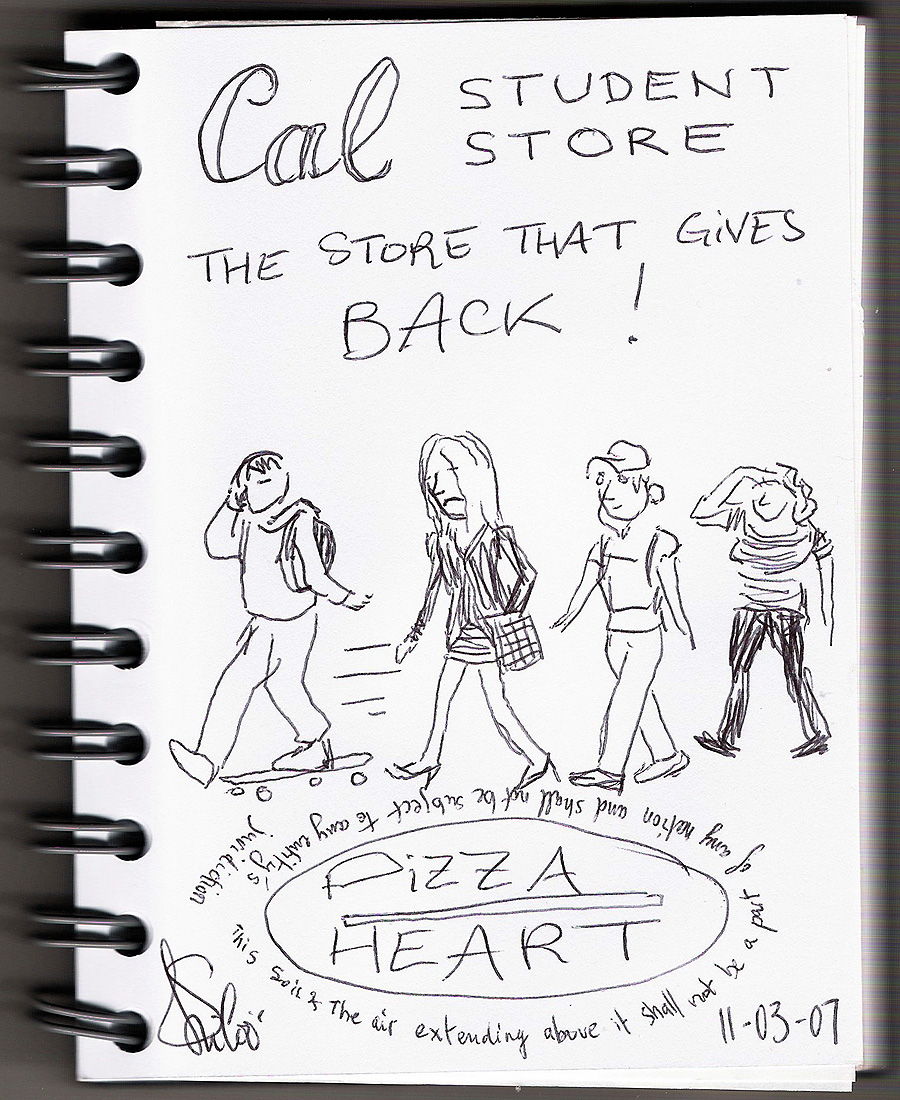 Cal STUDENT
STORE
THE STORE THAT GiVES
BACK !
PiZZA
HEART
This soil & The air extending above it shall not be a part of any nation and shall not be subject to any entity's jurisdiction
11-03-07